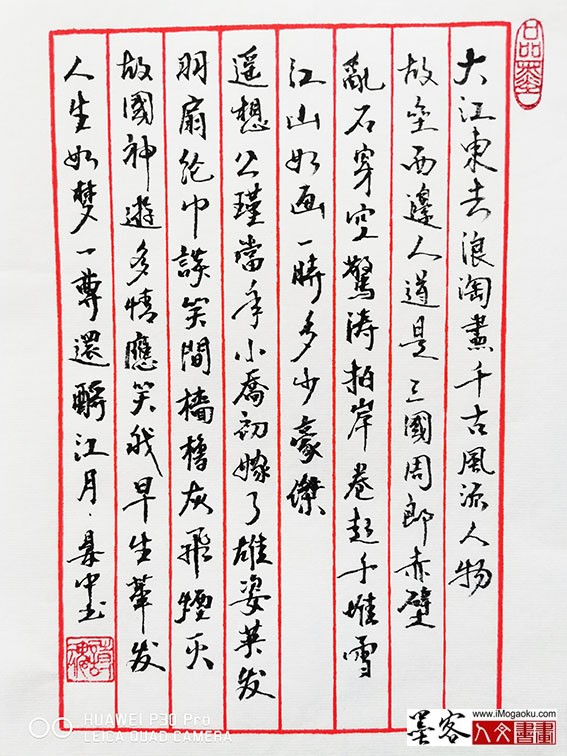 品墨
大江東去浪淘盡千古風流人物
故垒西邊人道是三國周郎赤壁
亂石穿空驚涛拍岸卷起千堆雪
江山如画一時多少豪傑
遥想公瑾當年小喬初嫁了雄姿英发
羽扇纶巾談笑間檣櫓灰飛煙灭
故國神遊多情應笑我早生華发
人生如梦一尊還酹江月·中书
HUAWEI P30 Pro
LEICA QUAD CAMERA
墨客
www.iMogaoku.com
人文書畫